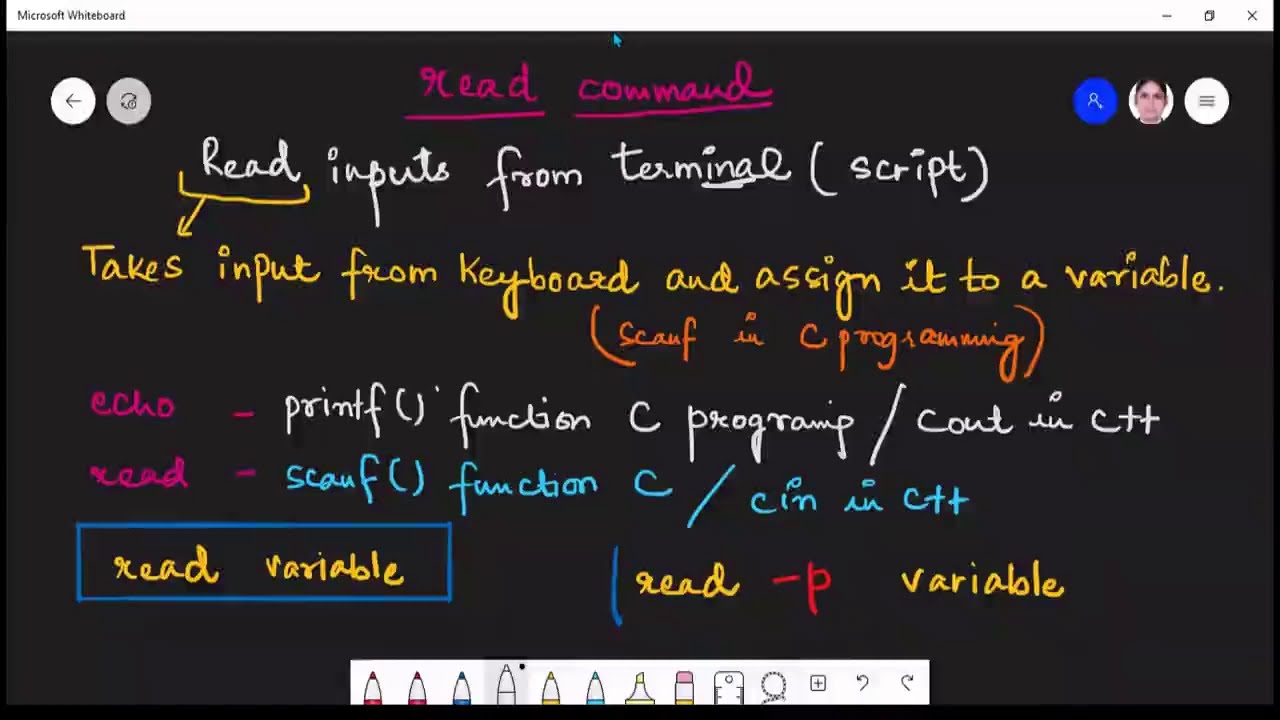 Microsoft Whiteboard
read command
Read inputs from terminal (script)
Takes input from keyboard and assign it to a variable.
(scanf in C programming)
echo - printf() function C programing / cout in C++
read - scanf() function C / cin in C++
read variable
read -p variable